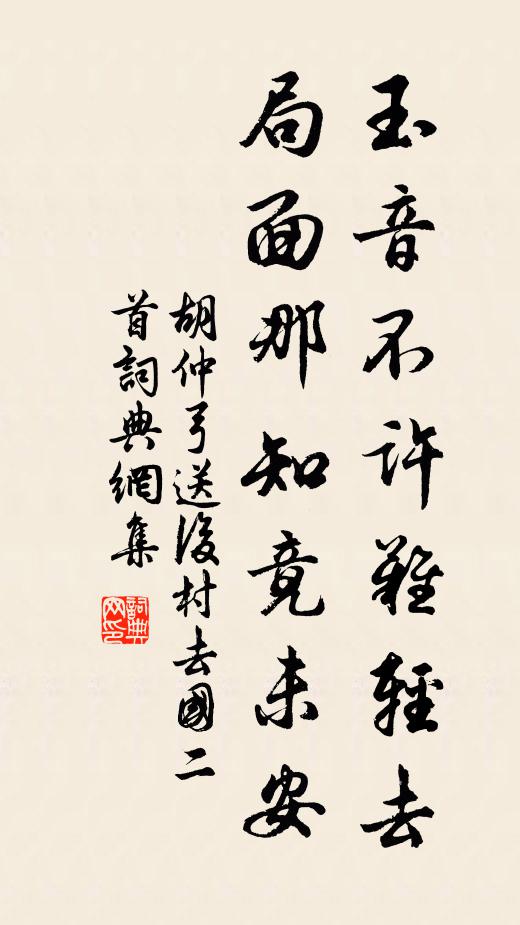 玉音不许难輕去
局面那知竟未安
胡仲弓送後村去國二
首詞典網集
詞典网印